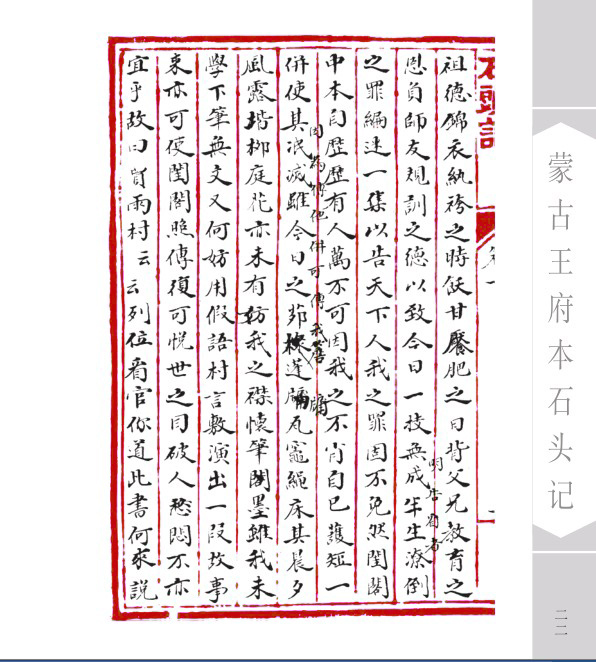 石頭記
祖德錦衣紈袴之時飫甘饜肥之日背父兄教育之
明告看者
恩負師友規訓之德以致今日一技無成半生潦倒
之罪編述一集以告天下人我之罪固不免然閨閣
中本自歷歷有人萬不可因我之不肖自已護短一
因為傳他併可傳我
牖
併使其泯滅雖今日之茆椽蓬牖瓦竈繩床其晨夕
風露堦柳庭花亦未有妨我之襟懷筆閣墨雖我未
學下筆無文又何妨用假語村言敷演出一段故事
來亦可使閨閣照傳復可悅世之目破人愁悶不亦
宜乎故曰賈雨村云云列位看官你道此書何來說
蒙古王府本石头记
二二